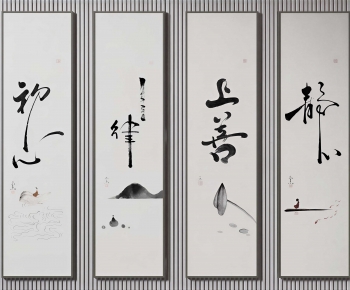 初心
自律
上善
静心